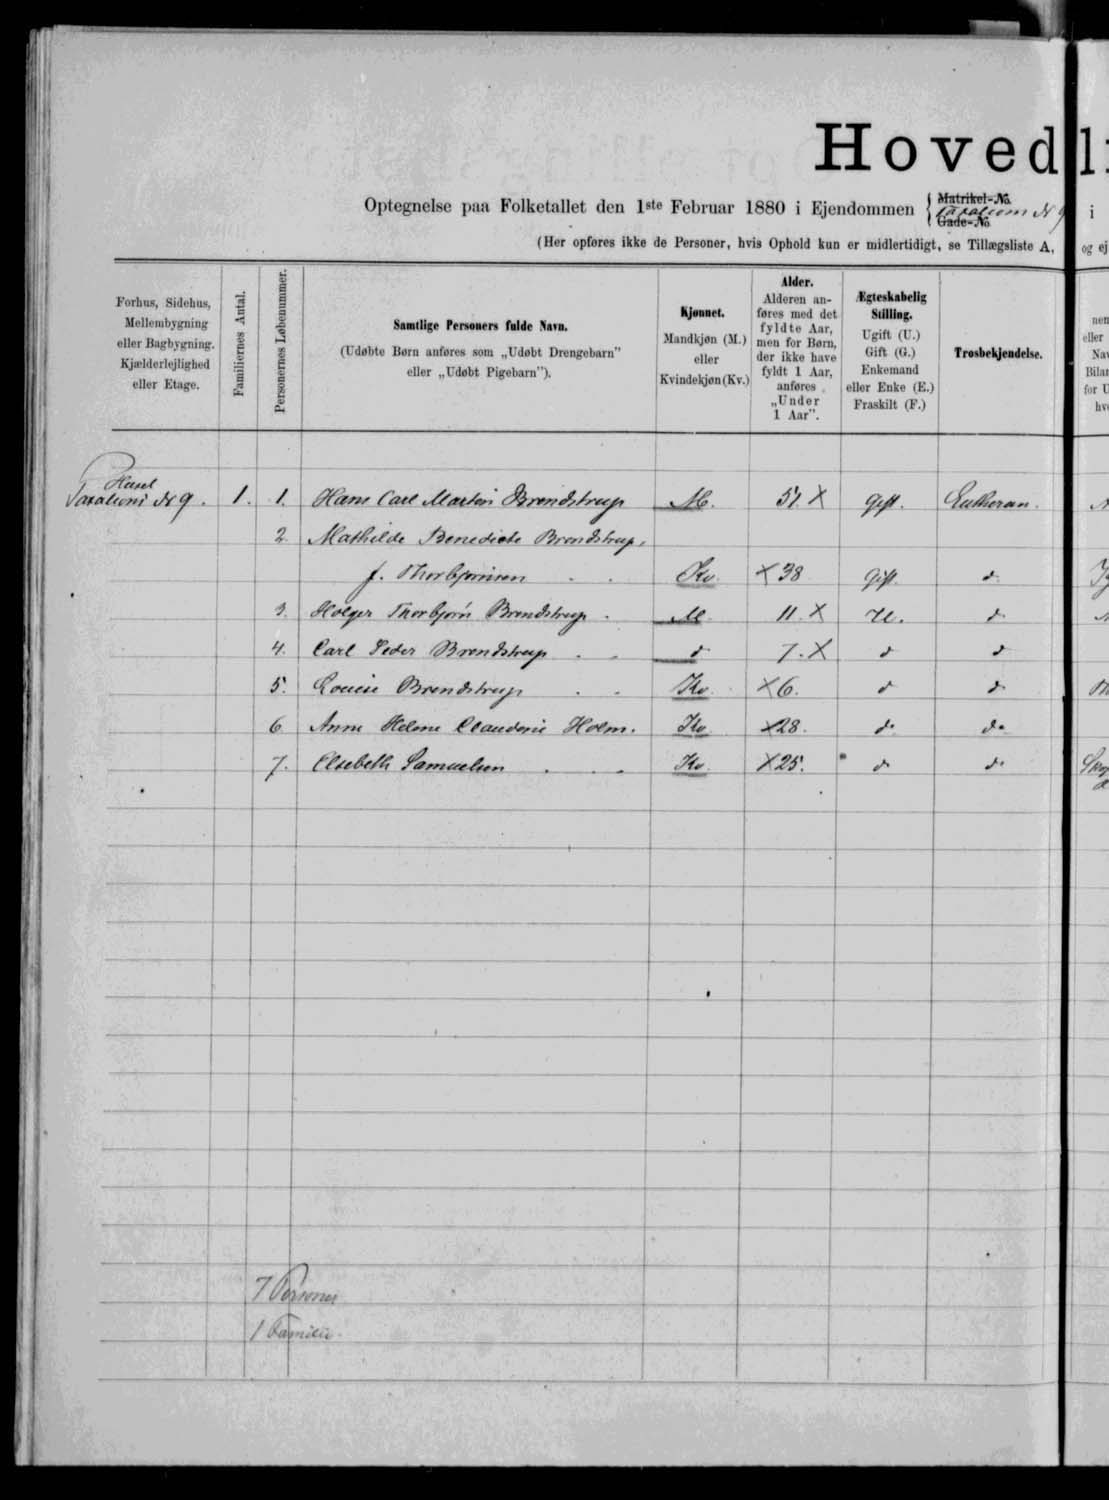 Hoved li
Optegnelse paa Folketallet den 1ste Februar 1880 i Ejendommen { Matrikel-No. Taxations No 9 Gade-No. i
(Her opføres ikke de Personer, hvis Ophold kun er midlertidigt, se Tillægsliste A, og ej
Forhus, Sidehus, Mellembygning eller Bagbygning. Kjælderlejlighed eller Etage.
Familiernes Antal.
Personernes Løbenummer.
Samtlige Personers fulde Navn.
(Udøbte Børn anføres som „Udøbt Drengebarn”
eller „Udøbt Pigebarn”).
Kjønnet.
Mandkjøn (M.)
eller
Kvindekjøn (Kv.)
Alder.
Alderen an-
føres med det
fyldte Aar,
men for Børn,
der ikke have
fyldt 1 Aar,
anføres
„Under
1 Aar”.
Ægteskabelig
Stilling.
Ugift (U.)
Gift (G.)
Enkemand
eller Enke (E.)
Fraskilt (F.)
Trosbekjendelse.
Huset
Taxations No 9. 1. 1. Hans Carl Martin Brendstrup M. 51. X Gift. Lutheran.
2. Mathilde Benedicte Brendstrup,
f. Thorbjørnsen Kv. X 38 Gift. do
3. Holger Thorbjørn Brendstrup. M. 11. X U. do
4. Carl Peder Brendstrup do 7. X do do
5. Louise Brendstrup Kv. X 6. do do
6. Anne Helene Claudine Holm. Kv. X 28. do do
7. Elsebeth Samuelsen Kv. X 25. do do
7 Personer
1 Familie.